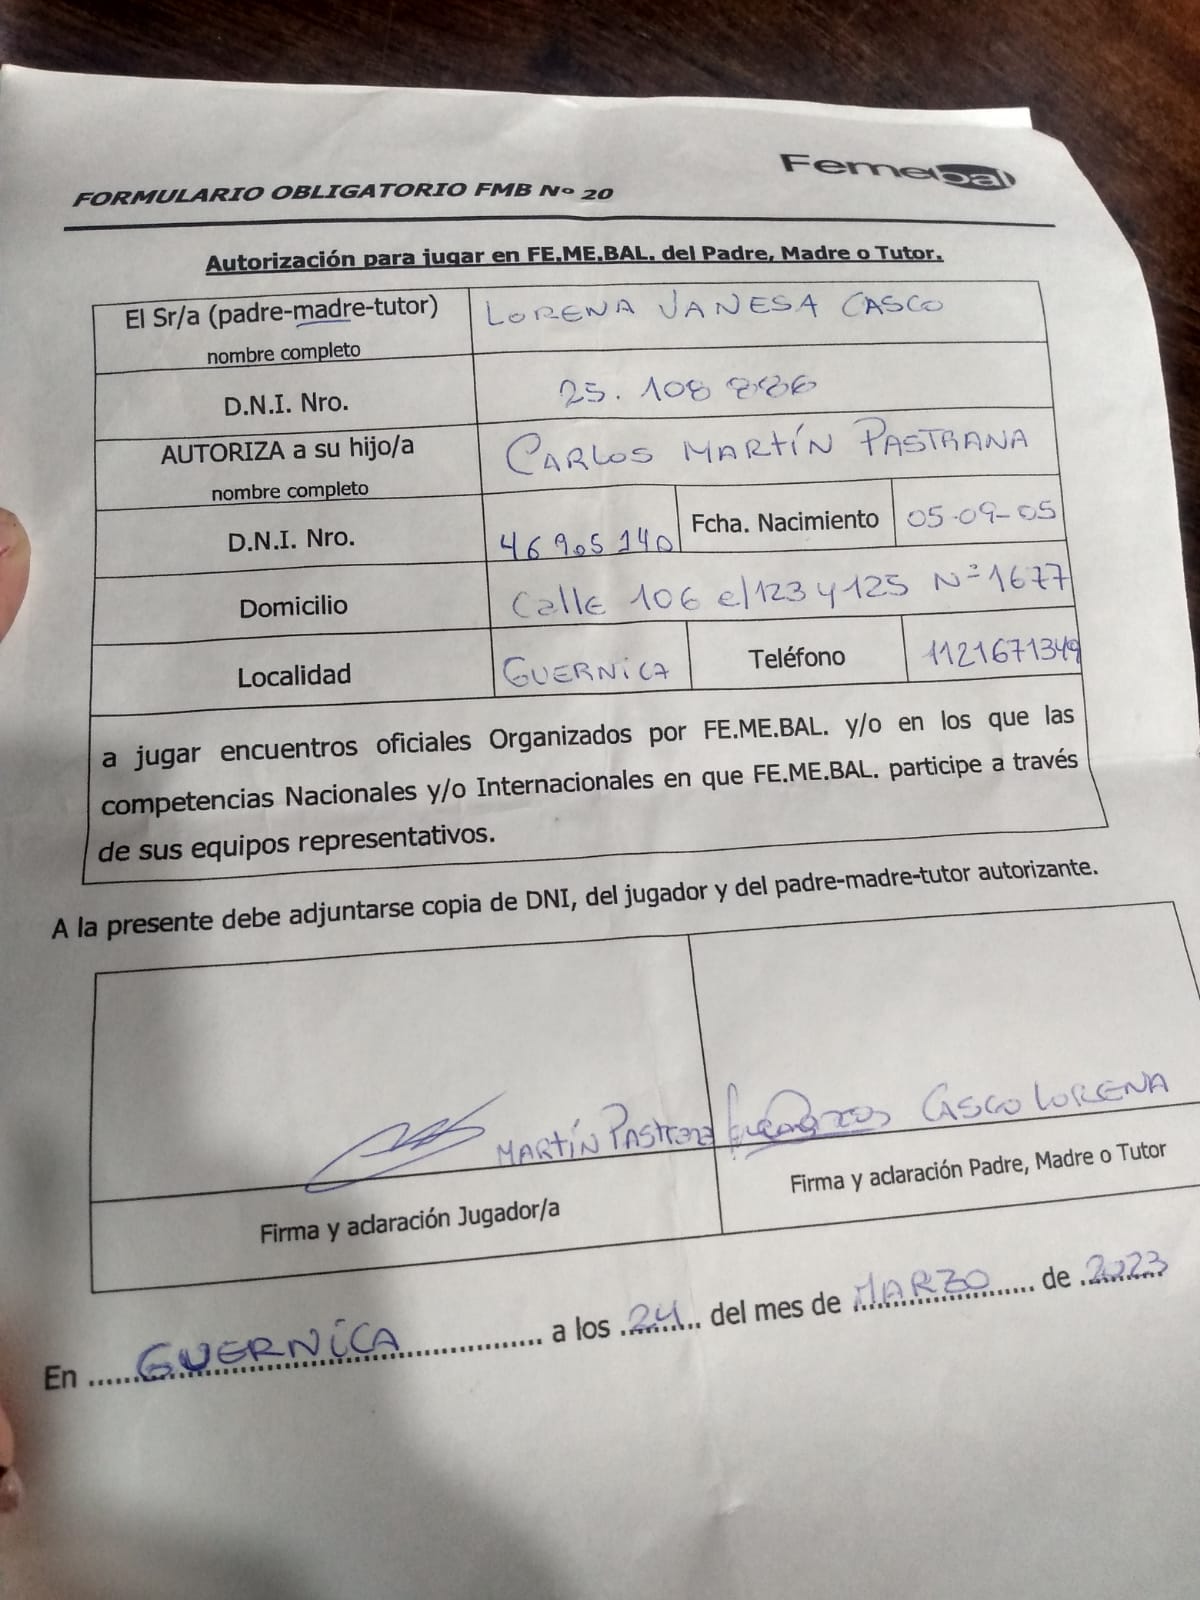 Femebal
FORMULARIO OBLIGATORIO FMB Nº 20
Autorización para jugar en FE.ME.BAL. del Padre, Madre o Tutor.
El Sr/a (padre-madre-tutor) LORENA VANESA CASCO
nombre completo
D.N.I. Nro. 25.108 886
AUTORIZA a su hijo/a CARLOS MARTÍN PASTRANA
nombre completo
D.N.I. Nro. 46905140 Fcha. Nacimiento 05-09-05
Domicilio Calle 106 e/123 y 125 Nº 1677
Localidad GUERNICA Teléfono 1121671349
a jugar encuentros oficiales Organizados por FE.ME.BAL. y/o en los que las
competencias Nacionales y/o Internacionales en que FE.ME.BAL. participe a través
de sus equipos representativos.
A la presente debe adjuntarse copia de DNI, del jugador y del padre-madre-tutor autorizante.
MARTÍN PASTRANA CASCO LORENA
Firma y aclaración Jugador/a Firma y aclaración Padre, Madre o Tutor
En ......GUERNICA.................. a los ..24.. del mes de ..MARZO...... de .2023.